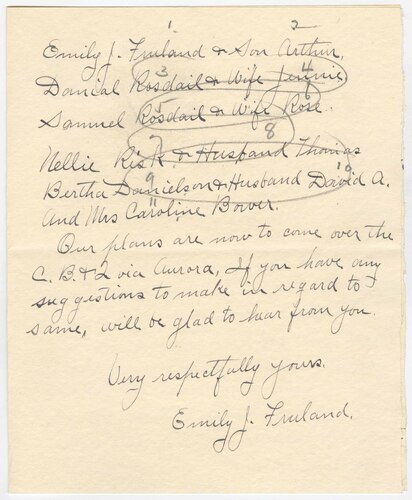 1 2
Emily J. Fruland & Son Arthur,
3 4
Danial Rosdail & Wife Jennie
5 6
Samuel Rosdail & Wife Rose.
7 8
Nellie Risk & Husband Thomas
9 10
Bertha Danielson & Husband David A.
11
And Mrs Caroline Bower.
Our plans are now to come over the
C. B. & Q via Aurora, If you have any
suggestions to make in regard to
same, will be glad to hear from you.
Very respectfully yours.
Emily J. Fruland.